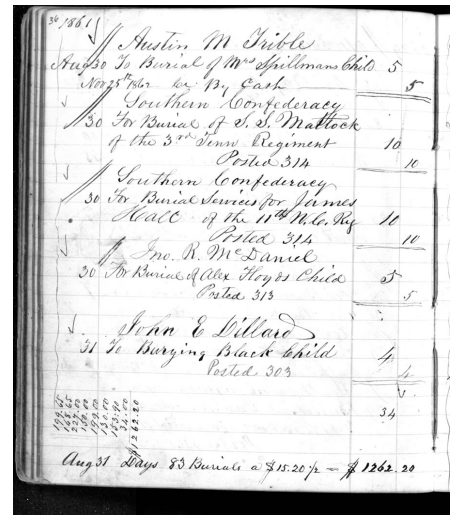 36 1861
Austin M Trible
Aug 30 To Burial of Mrs Spillmans Child 5
Nov 25th 1862 By Cash 5
Southern Confederacy
30 For Burial of S. S. Mattock
of the 3rd Tenn Regiment 10
Posted 314 10
Southern Confederacy
30 For Burial Services for James
Hall of the 11th N.C. Reg 10
Posted 314 10
Jno. R. McDaniel
30 For Burial of Alex Floyds Child 5
Posted 313 5
John E Dillard
31 To Burying Black Child 4
Posted 303 4
34
199.00
130.00
34.00
$1262.20
Aug 31 Days 83 Burials a $15.20 1/2 = $1262.20